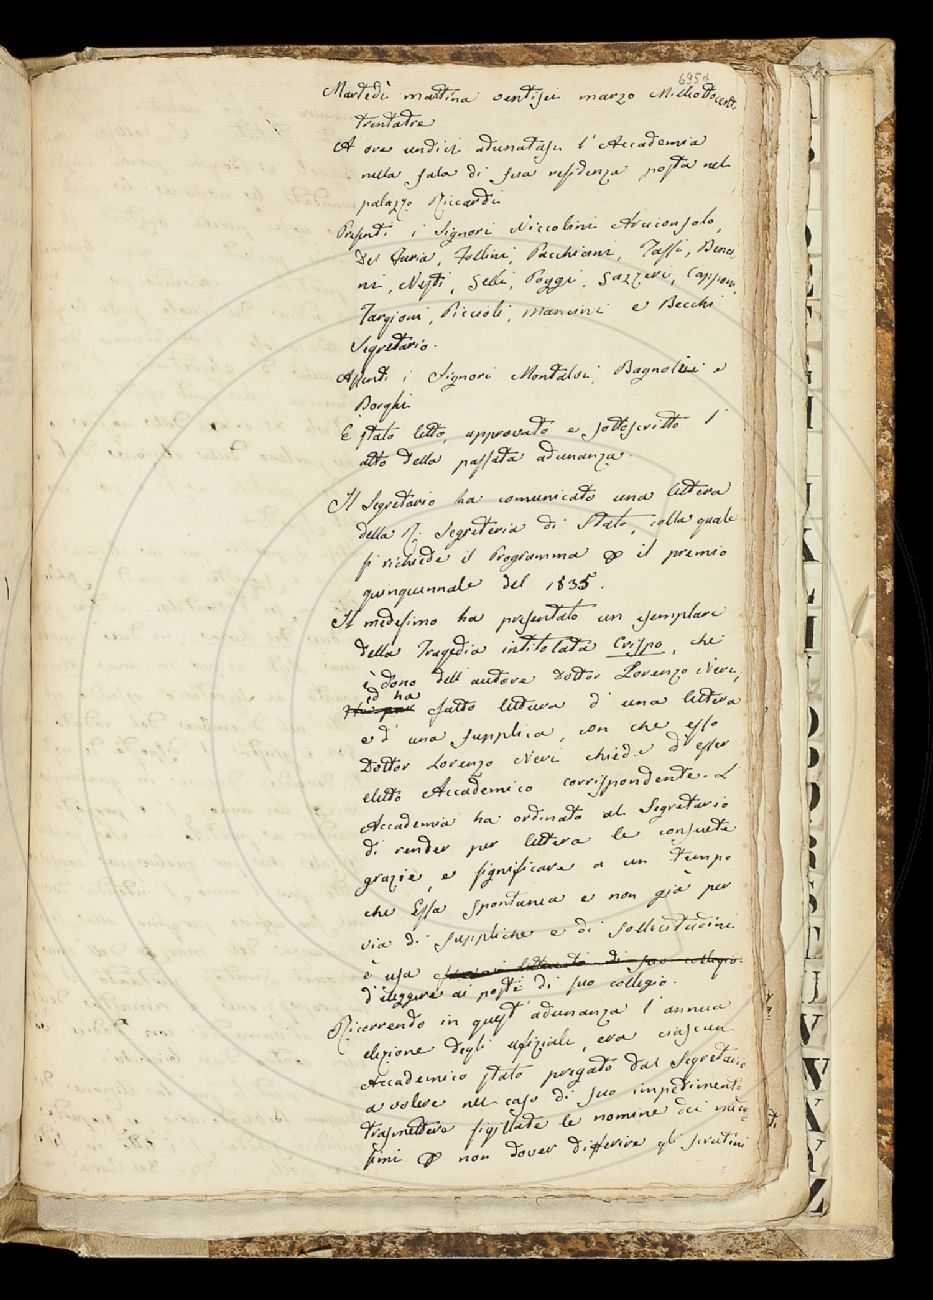 695
Martedì mattina ventisei marzo Milleottocento
trentatre
A ore undici adunatasi l'Accademia
nella sala di sua residenza posta nel
palazzo Riccardi
Presenti i Signori Niccolini Arciconsolo,
Del Furia, Follini, Pacchiani, Tassi, Benci
ni, Nesti, Gelli, Poggi, Gazzeri, Capponi,
Targioni, Piccioli, Mancini e Becchi
Segretario.
Assenti i Signori Montalvi, Bagnoli e
Borghi
È stato letto, approvato e sottoscritto l'
atto della passata adunanza.
Il Segretario ha comunicato una lettera
della R. Segreteria di Stato, colla quale
si richiede il Programma il premio
quinquennale del 1835.
Il medesimo ha presentato un esemplare
della Tragedia intitolata Crispo, che
è dono dell'autore Dottor Lorenzo Neri,
ed ha
fatto lettura d'una lettera
e d'una supplica, con che esso
Dottor Lorenzo Neri chiede d'esser
eletto Accademico corrispondente. L'
Accademia ha ordinato al Segretario
di render per lettera le consuete
grazie, e significare a un tempo
che Essa spontanea e non già per
via di suppliche e di sollecitudini
è usa
d'eleggere ai posti di suo collegio.
Ricorrendo in quest'adunanza l'annua
elezione degli ufiziali, era ciascun
Accademico stato pregato dal Segretario
a volere nel caso di suo impedimento
trasmettere sigillate le nomine dei mede
simi non dover differire gli scrutini